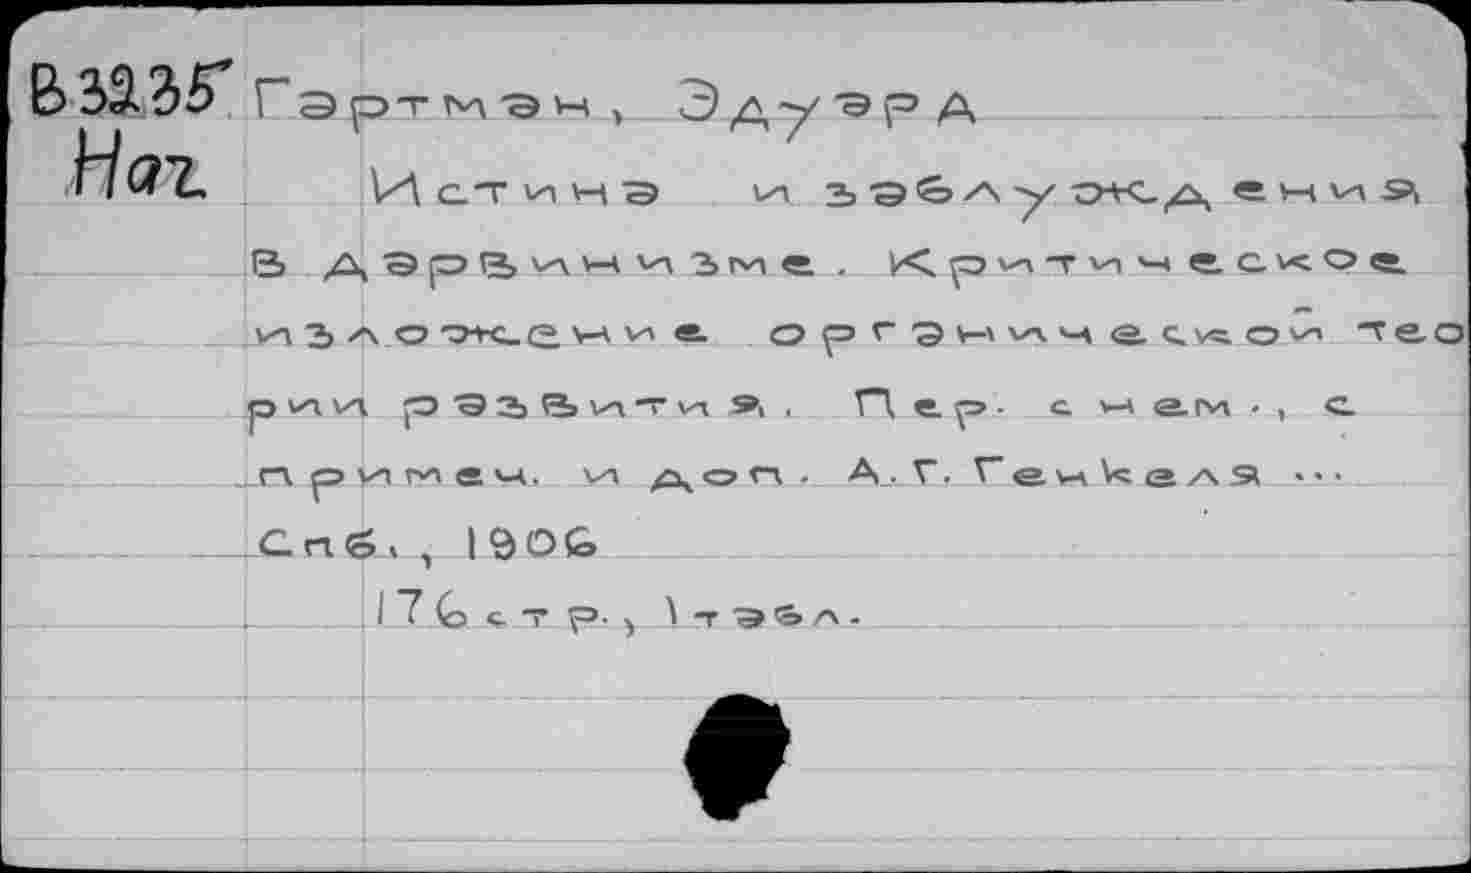 B3235 Гартман, Эдуард
Наг. Истина и заблуждения
в дарвинизме. Критическое
изложение органической тео
рии развития. Пер. с нем., с
примеч. и доп. А. Г. Генкеля ...
Спб., 1906
176 стр., 1 табл.